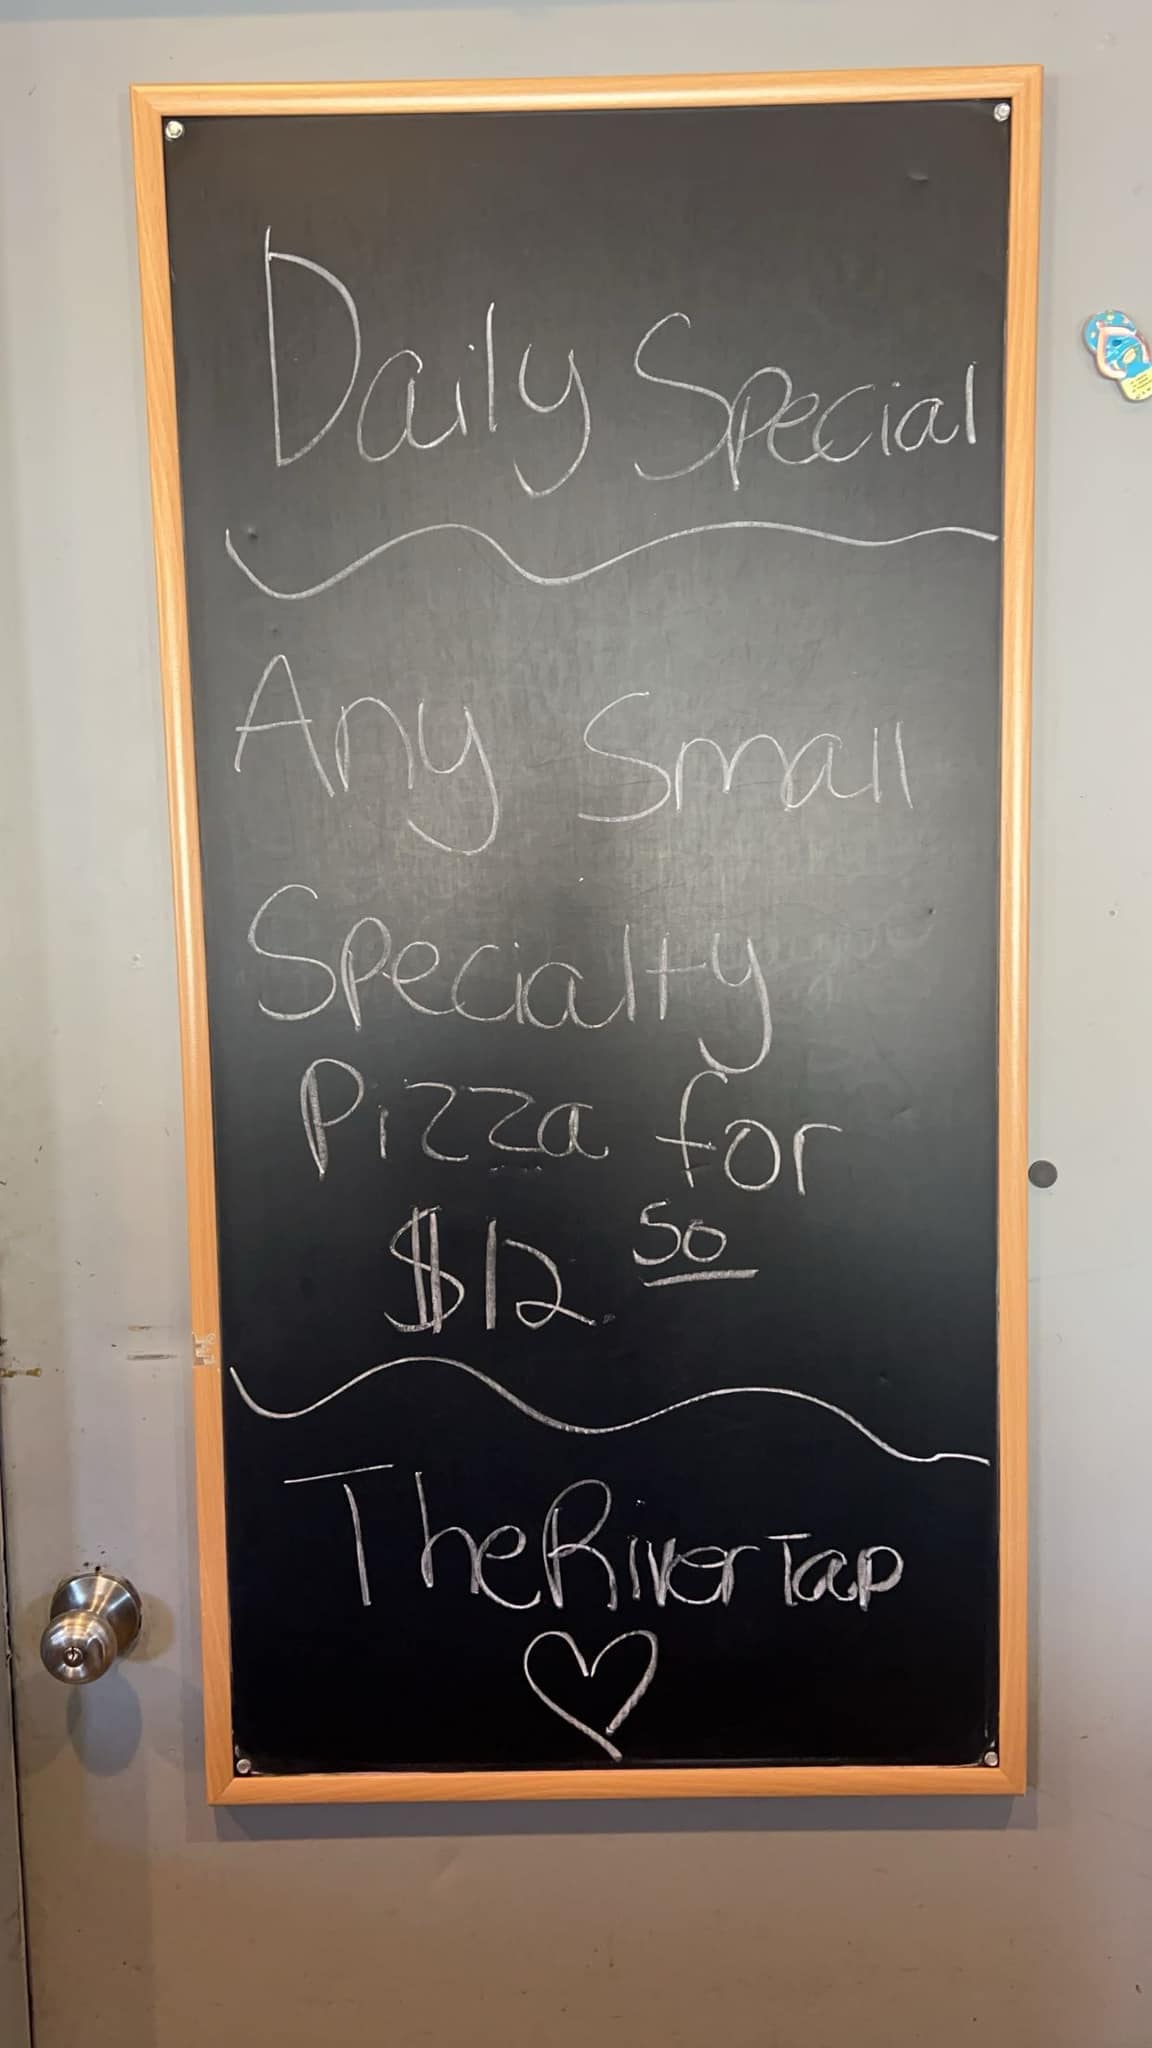 Daily Special
Any Small
Specialty
Pizza for
$12.50
The River Tap